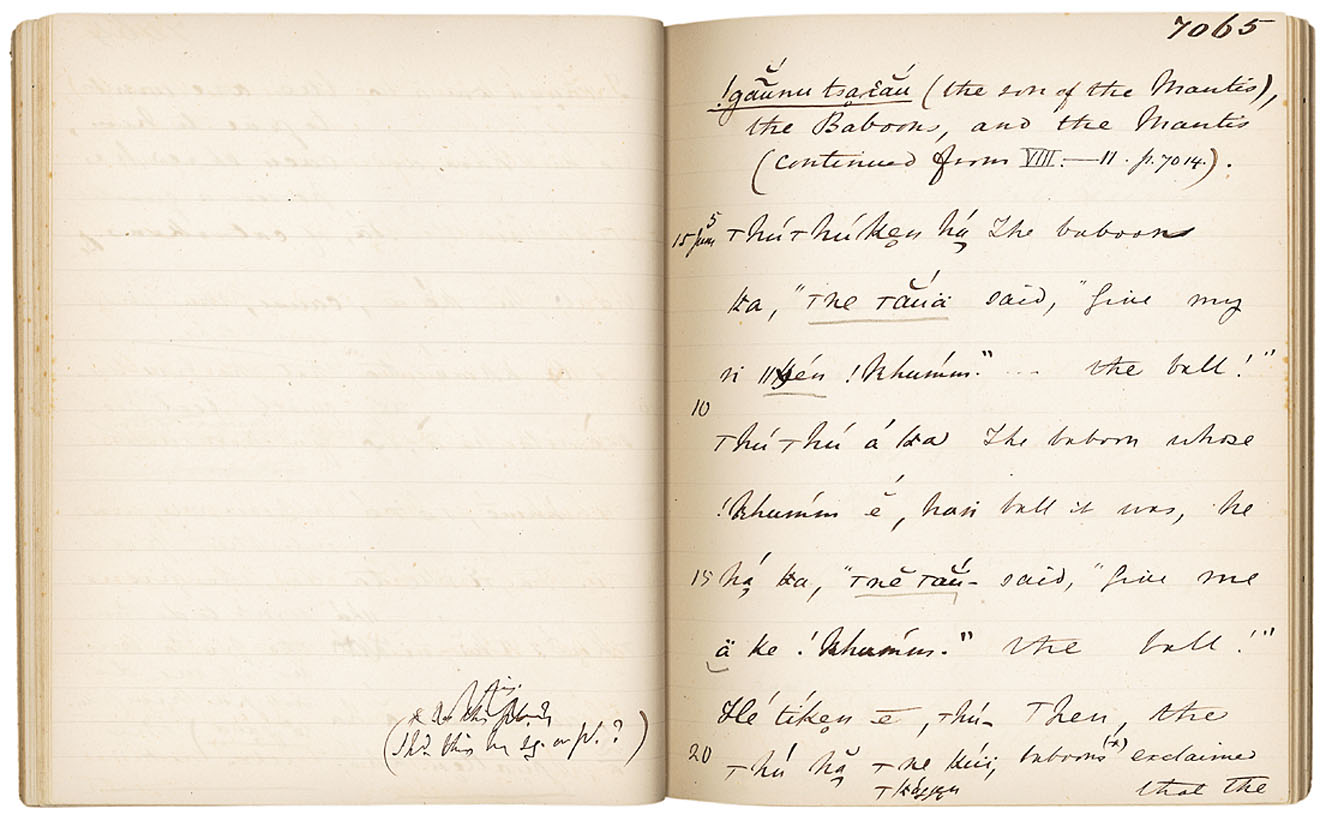 (Shd. this be sg. or pl.?)
7065
!gẵunu tsaxău (the son of the Mantis),
the Baboons, and the Mantis
(continued from VIII.—11. p.7014.).
15 June 5 ⊤hú⊤hú ken há̤ The baboons
ka, "⊤ne ⊤ăúä said, "Give my
si ǁkén !khumm." ... the ball!"
10
⊤hú⊤hú á ka The baboon whose
!khumm é, haṅ ball it was, he
15 há̤ ka, "⊤nĕ ⊤ăú- said, "Give me
ä ke !khumm." the ball!"
Hé tíken ē, ⊤hú- Then, the
20 ⊤hú hă̤ ⊤ne kúi, baboons (x) exclaimed
⊤kággen that the